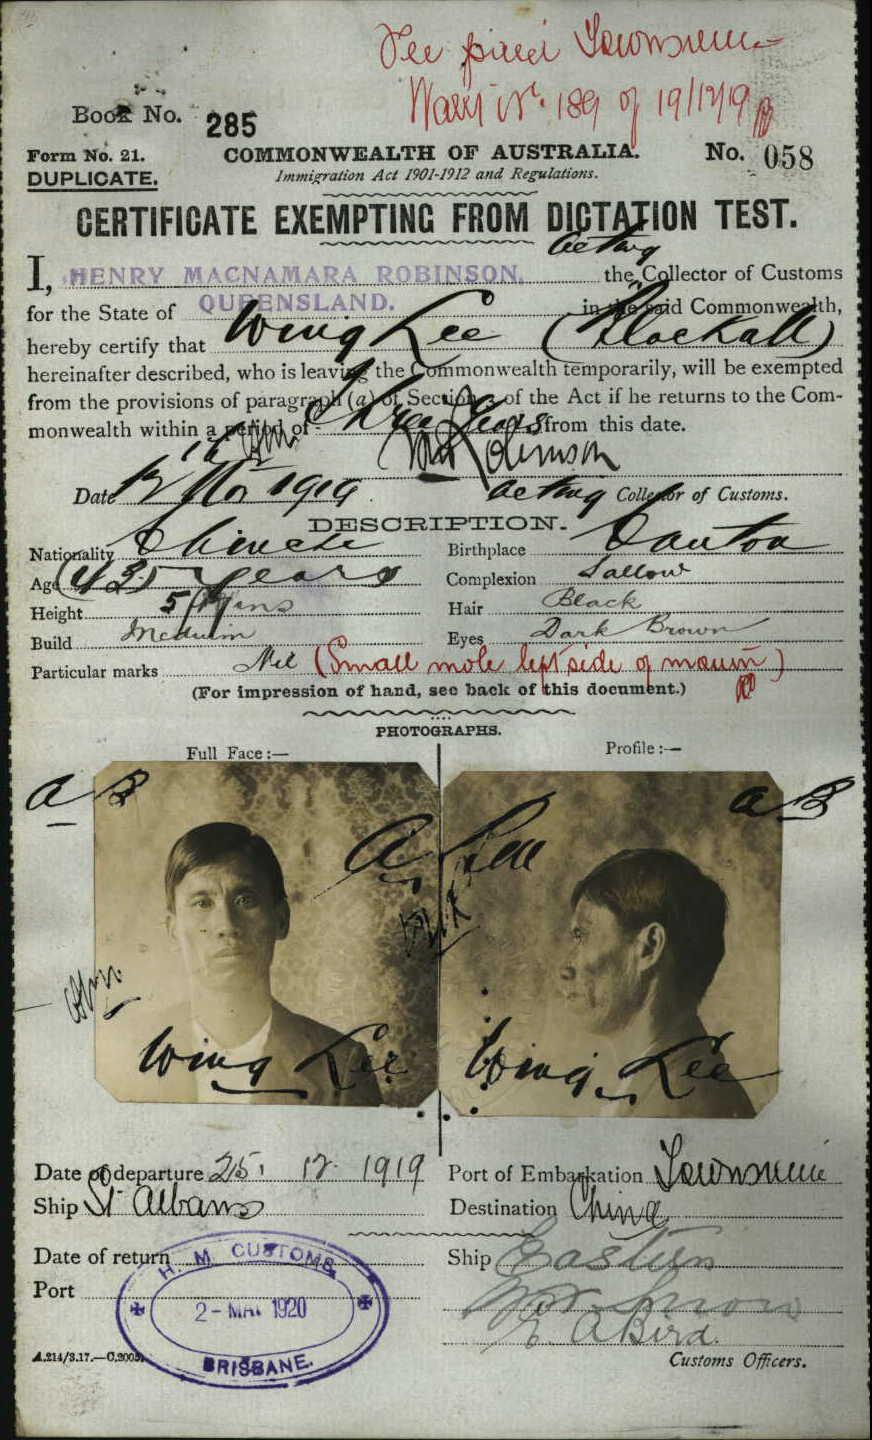 See paid Townsville
Wart No. 189 of 19/12/19
Book No. 285
Form No. 21. COMMONWEALTH OF AUSTRALIA. No. 058
DUPLICATE. Immigration Act 1901-1912 and Regulations.
CERTIFICATE EXEMPTING FROM DICTATION TEST.
acting
I, HENRY MACNAMARA ROBINSON, the Collector of Customs
for the State of QUEENSLAND. in the said Commonwealth,
hereby certify that Wing Lee (Blackall)
hereinafter described, who is leaving the Commonwealth temporarily, will be exempted
from the provisions of paragraph (a) of Section 3 of the Act if he returns to the Com-
monwealth within a period of Three Years from this date.
Robinson
Date 1919. acting Collector of Customs.
DESCRIPTION.
Nationality Chinese Birthplace Canton
Age (43) years Complexion Sallow
Height 5 ins Hair Black
Build Medium Eyes Dark Brown
Particular marks Nil (Small mole left side of mouth)
(For impression of hand, see back of this document.)
PHOTOGRAPHS.
Full Face :— Profile :—
a B a B
Wing Lee Wing Lee
Date of departure 25. 12. 1919 Port of Embarkation Townsville
Ship St Albans Destination China
Date of return Ship Eastern
Port
H. M. CUSTOMS.
2 - MAR 1920
BRISBANE.
A Bird.
A.214/3.17.—C.2005. Customs Officers.